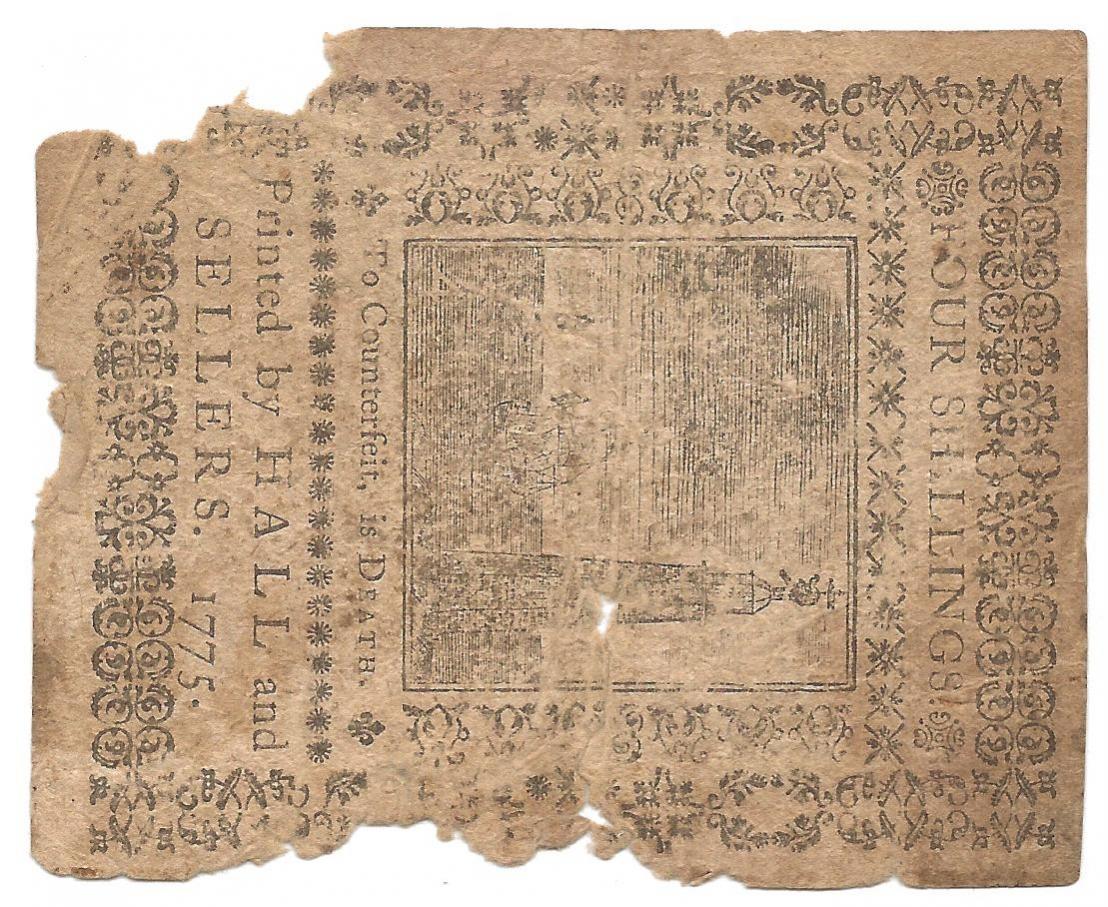 FOUR SHILLINGS.
To Counterfeit, is DEATH.
Printed by HALL and
SELLERS. 1775.